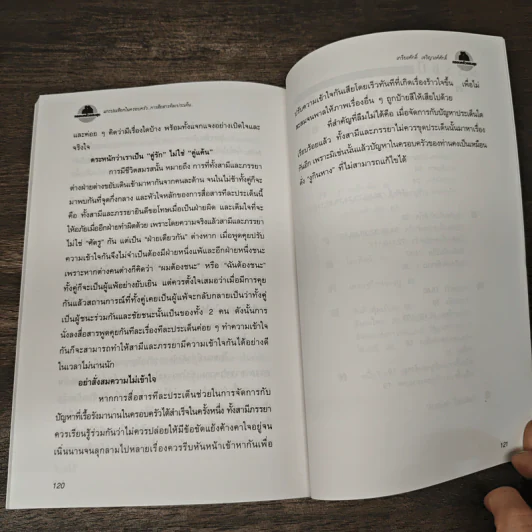 และค่อย ๆ คิดว่ามีเรื่องใดบ้าง พร้อมทั้งแจกแจงอย่างเปิดใจและ
จริงใจ
ตระหนักว่าเราเป็น "คู่รัก" ไม่ใช่ "คู่แค้น"
การมีชีวิตสมรสนั้น หมายถึง การที่ทั้งสามีและภรรยา
ต่างฝ่ายต่างขยับเดินเข้ามาหากันจากคนละด้าน จนในไม่ช้าทั้งคู่ก็จะ
มาพบกันที่จุดกึ่งกลาง และหัวใจหลักของการสื่อสารทีละประเด็นนี้
คือ ทั้งสามีและภรรยายินดีขอโทษเมื่อเป็นฝ่ายผิด และเต็มใจที่จะ
ให้อภัยเมื่ออีกฝ่ายทำผิดด้วย เพราะโดยความจริงแล้วสามีและภรรยา
ไม่ใช่ "ศัตรู" กัน แต่เป็น "ฝ่ายเดียวกัน" ต่างหาก เมื่อพูดคุยปรับ
ความเข้าใจกันจึงไม่จำเป็นต้องมีฝ่ายหนึ่งแพ้และอีกฝ่ายหนึ่งชนะ
เพราะหากต่างคนต่างก็คิดว่า "ผมต้องชนะ" หรือ "ฉันต้องชนะ"
ทั้งคู่ก็จะเป็นผู้แพ้อย่างยับเยิน แต่ควรตั้งใจเสมอว่าเมื่อมีการคุย
กันแล้วสถานการณ์ที่ทั้งคู่เคยเป็นผู้แพ้จะกลับกลายเป็นว่าทั้งคู่
เป็นผู้ชนะร่วมกันและชัยชนะนั้นเป็นของทั้ง 2 คน ดังนั้นการ
นั่งลงสื่อสารพูดคุยกันทีละเรื่องทีละประเด็นค่อย ๆ ทำความเข้าใจ
กันก็จะสามารถทำให้สามีและภรรยามีความเข้าใจกันได้อย่างดี
ในเวลาไม่นานนัก
อย่าสั่งสมความไม่เข้าใจ
หากการสื่อสารทีละประเด็นช่วยในการจัดการกับ
ปัญหาที่เรื้อรังมานานในครอบครัวได้สำเร็จในครั้งหนึ่ง ทั้งสามีภรรยา
ควรเรียนรู้ร่วมกันว่าไม่ควรปล่อยให้มีข้อขัดแย้งค้างคาใจอยู่จน
เนิ่นนานจนลุกลามไปหลายเรื่องควรรีบหันหน้าเข้าหากันเพื่อ
120
เกรียงศักดิ์ เจริญวงศ์ศักดิ์
ปรับความเข้าใจกันเสียโดยเร็วทันทีที่เกิดเรื่องร้าวใจขึ้น เพื่อไม่
ให้ภาพเรื่องอื่น ๆ ถูกป้ายสีให้เสียไปด้วย
ที่สำคัญที่ลืมไม่ได้คือ เมื่อจัดการกับปัญหาประเด็นใด
เรียบร้อยแล้ว ทั้งสามีและภรรยาไม่ควรขุดประเด็นนั้นมาหาเรื่อง
กันอีก เพราะมิเช่นนั้นแล้วปัญหาในครอบครัวของท่านคงเป็นเหมือน
ดั่ง "งูกินหาง" ที่ไม่สามารถแก้ไขได้